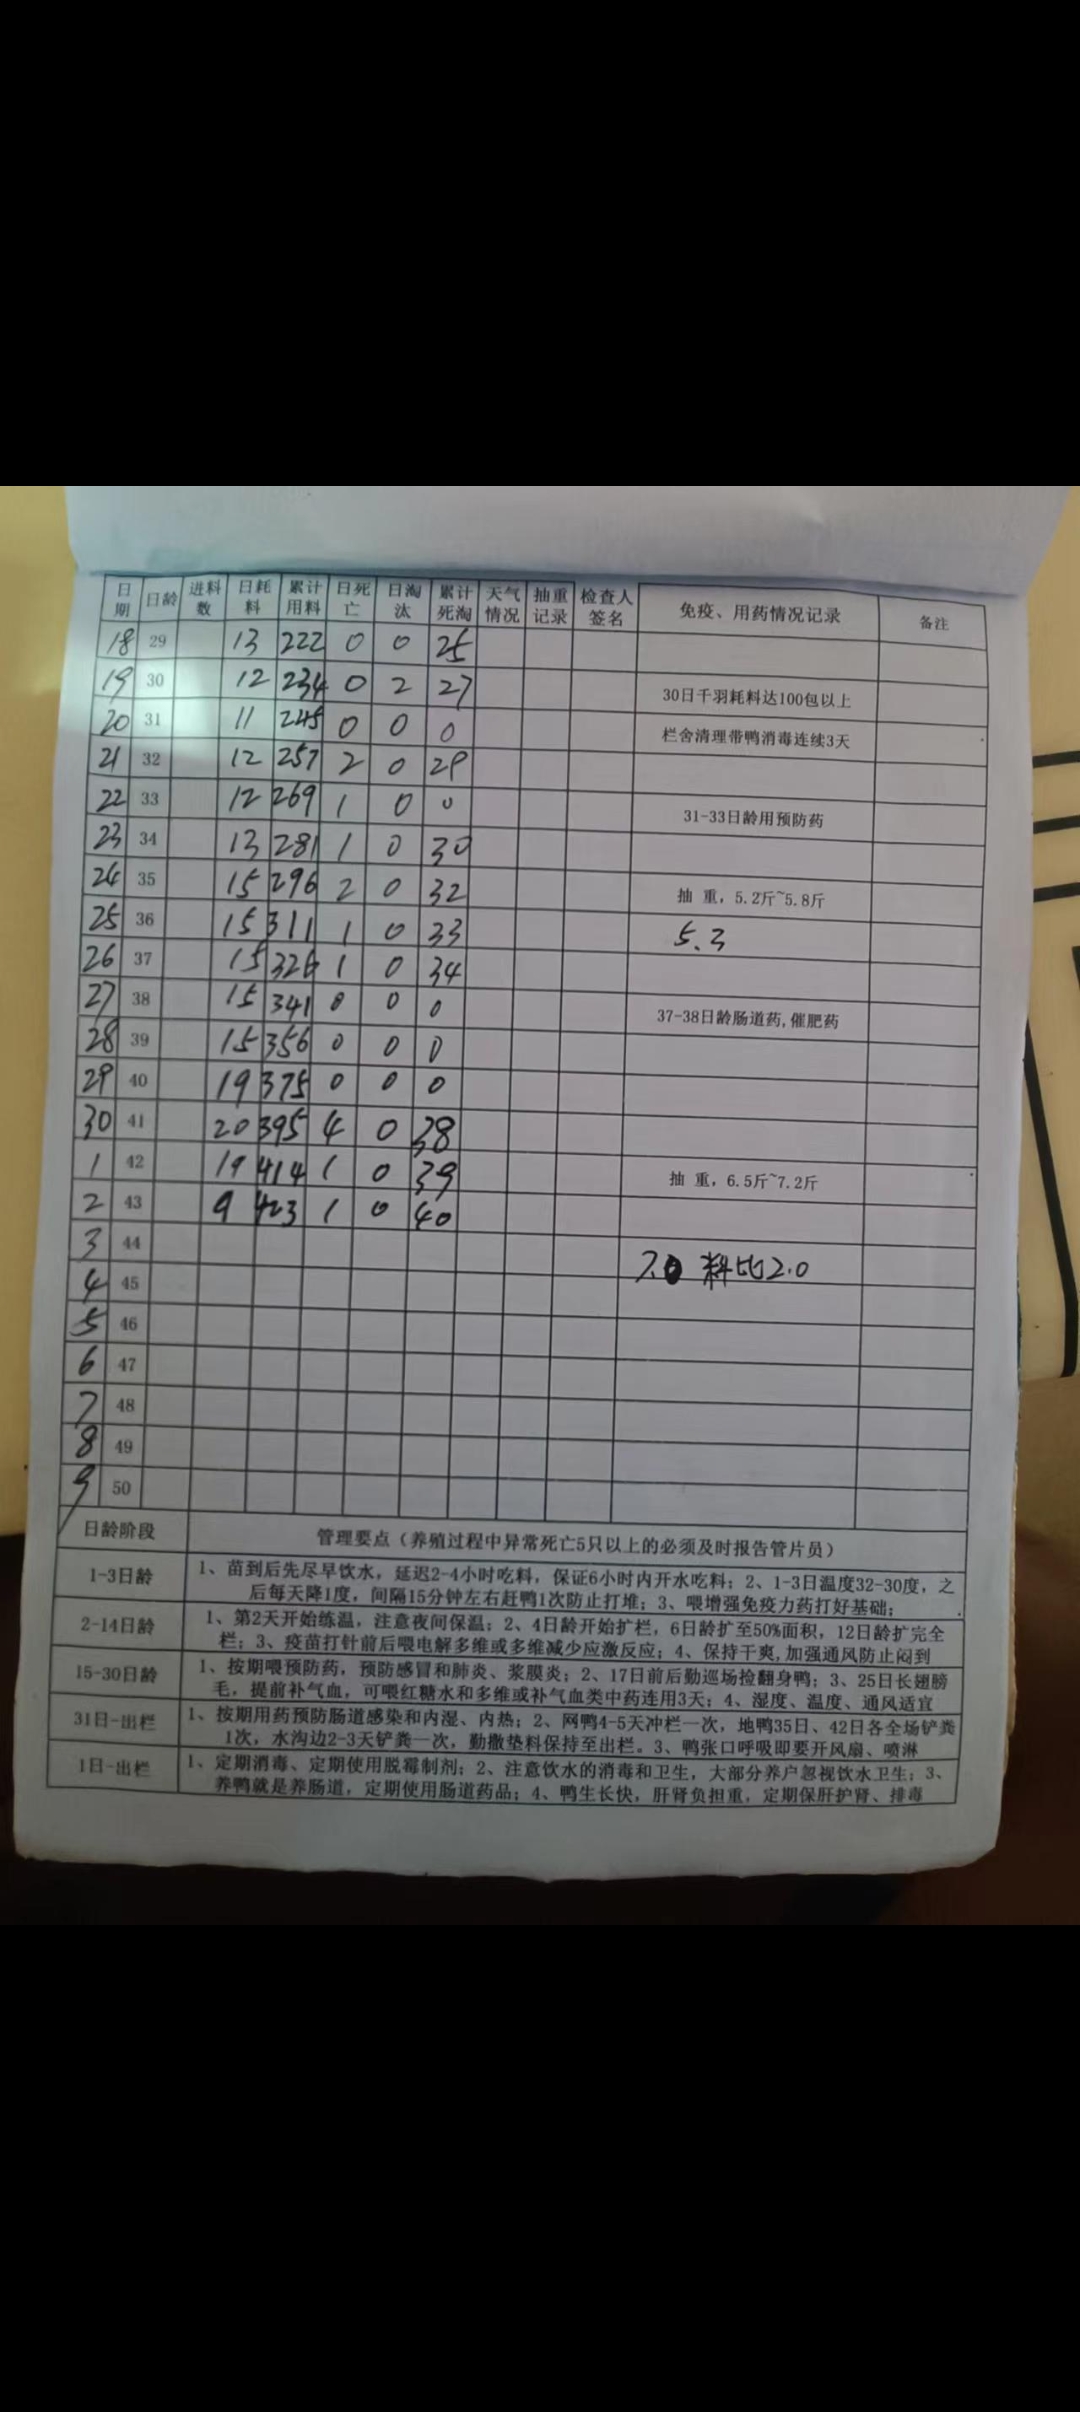 日期 日龄 进料数 日耗料 累计用料 日死亡 日淘汰 累计死淘 天气情况 抽重记录 检查人签名 免疫、用药情况记录 备注
18 29 13 222 0 0 25
19 30 12 234 0 2 27 30日千羽耗料达100包以上
20 31 11 245 0 0 0 栏舍清理带鸭消毒连续3天
21 32 12 257 2 0 29
22 33 12 269 1 0 0 31-33日龄用预防药
23 34 13 281 1 0 30
24 35 15 296 2 0 32 抽 重，5.2斤~5.8斤
25 36 15 311 1 0 33 5.3
26 37 15 326 1 0 34
27 38 15 341 0 0 0 37-38日龄肠道药,催肥药
28 39 15 356 0 0 0
29 40 19 375 0 0 0
30 41 20 395 4 0 38
1 42 19 414 1 0 39 抽 重，6.5斤~7.2斤
2 43 9 423 1 0 40
3 44 7.0 料比2.0
4 45
5 46
6 47
7 48
8 49
9 50
日龄阶段 管理要点（养殖过程中异常死亡5只以上的必须及时报告管片员）
1-3日龄 1、苗到后先尽早饮水，延迟2-4小时吃料，保证6小时内开水吃料；2、1-3日温度32-30度，之
后每天降1度，间隔15分钟左右赶鸭1次防止打堆；3、喂增强免疫力药打好基础；
2-14日龄 1、第2天开始练温，注意夜间保温；2、4日龄开始扩栏，6日龄扩至50%面积，12日龄扩完全
栏；3、疫苗打针前后喂电解多维或多维减少应激反应；4、保持干爽,加强通风防止闷到
15-30日龄 1、按期喂预防药，预防感冒和肺炎、浆膜炎；2、17日前后勤巡场捡翻身鸭；3、25日长翅膀
毛，提前补气血，可喂红糖水和多维或补气血类中药连用3天；4、湿度、温度、通风适宜
31日-出栏 1、按期用药预防肠道感染和内湿、内热；2、网鸭4-5天冲栏一次，地鸭35日、42日各全场铲粪
1次，水沟边2-3天铲粪一次，勤撒垫料保持至出栏。3、鸭张口呼吸即要开风扇、喷淋
1日-出栏 1、定期消毒、定期使用脱霉制剂；2、注意饮水的消毒和卫生，大部分养户忽视饮水卫生；3、
养鸭就是养肠道，定期使用肠道药品；4、鸭生长快，肝肾负担重，定期保肝护肾、排毒